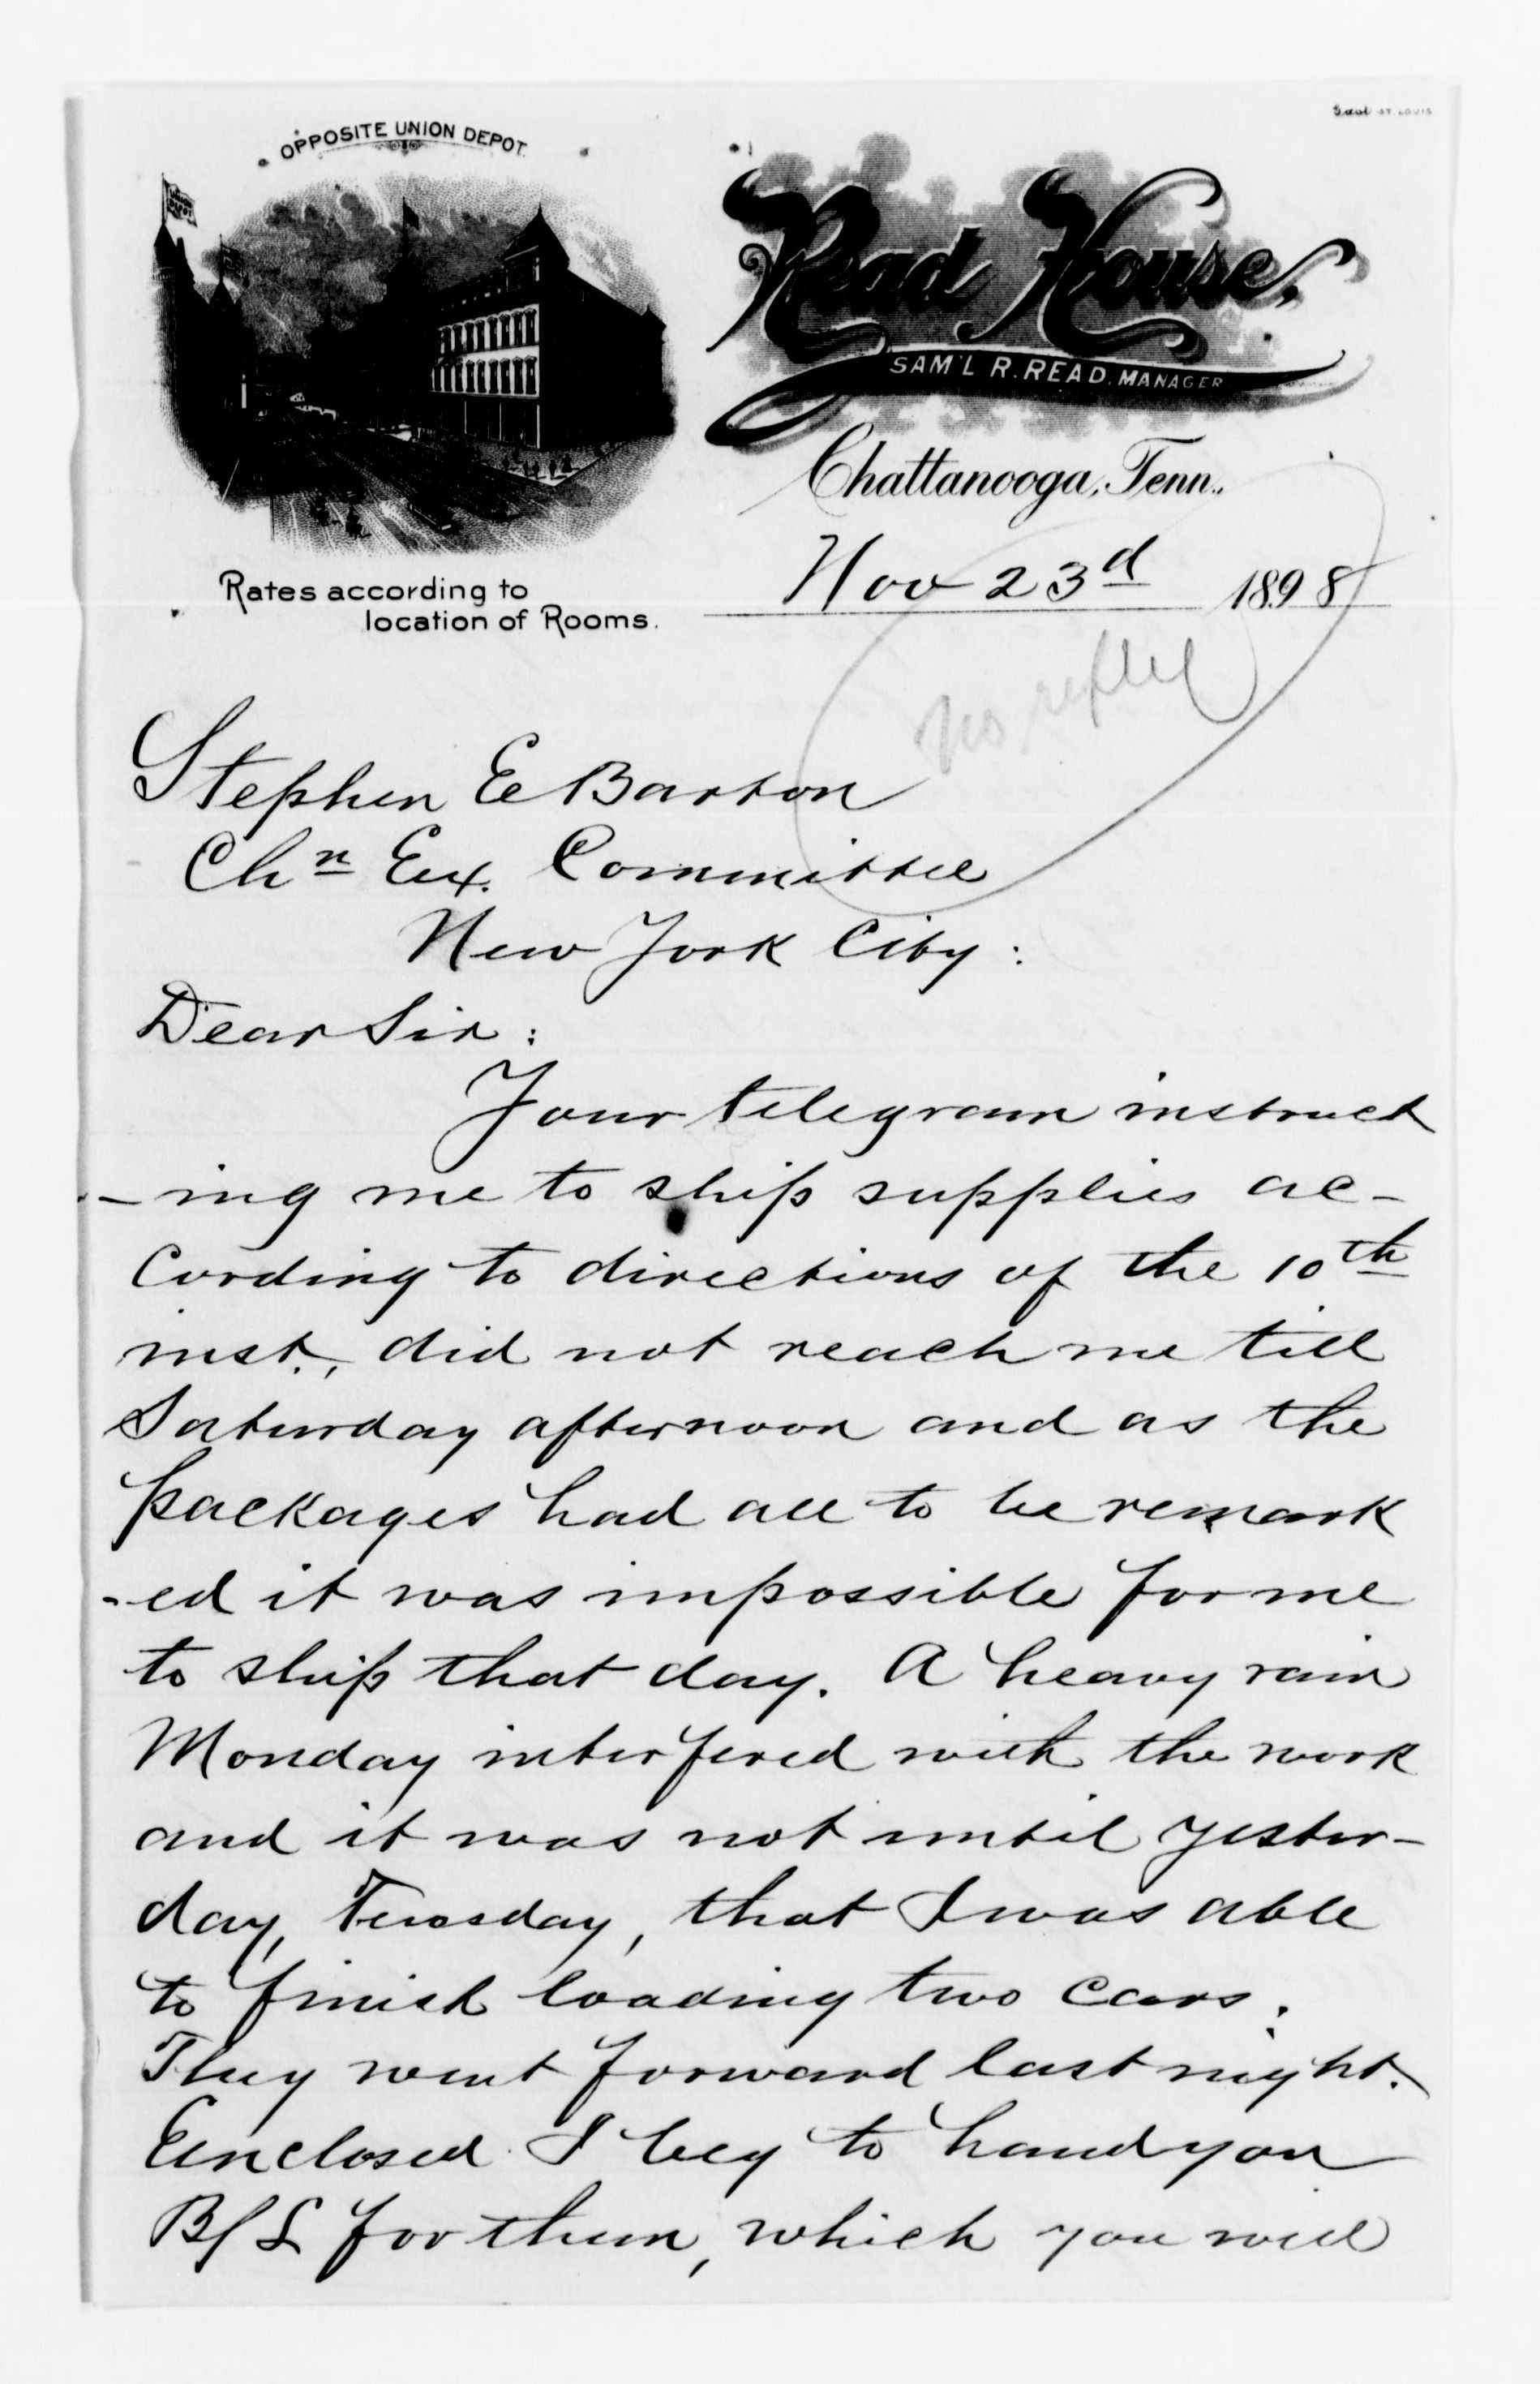 OPPOSITE UNION DEPOT.
UNION DEPOT
Read House.
SAM'L R. READ, MANAGER
Chattanooga, Tenn.,
Rates according to
location of Rooms.
Nov 23d 1898
No reply
Stephen E Barton
Chn Ex. Committee
New York City :
Dear Sir :
Your telegram instruct
- ing me to ship supplies ac-
cording to directions of the 10th
inst., did not reach me till
Saturday afternoon and as the
packages had all to be remark
-ed it was impossible for me
to ship that day. A heavy rain
Monday interfered with the work
and it was not until yester-
day, Tuesday, that I was able
to finish loading two cars.
They went forward last night.
Enclosed I beg to hand you
B/L for them, which you will